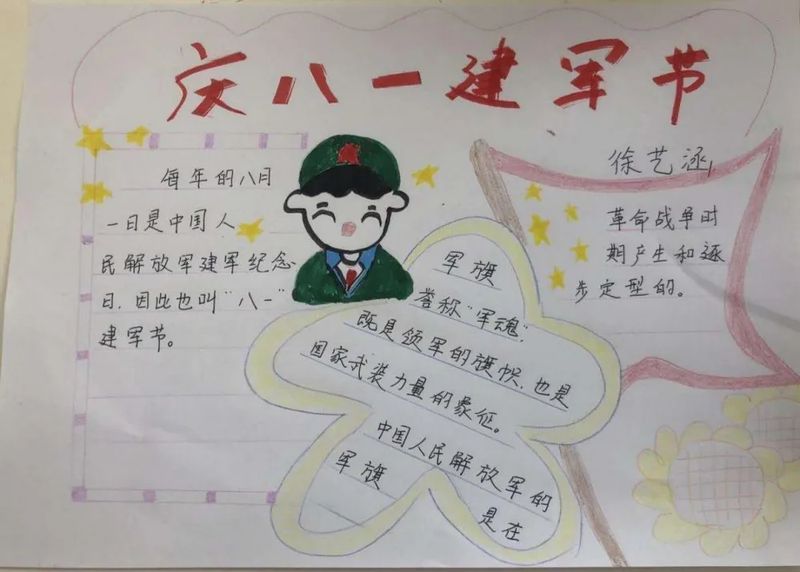 庆八一建军节
每年的八月
一日是中国人
民解放军建军纪念
日,因此也叫"八一"
建军节。
军旗
誉称"军魂",
既是领军的旗帜,也是
国家武装力量的象征。
中国人民解放军的
军旗
是在
徐艺涵
革命战争时
期产生和逐
步定型的。